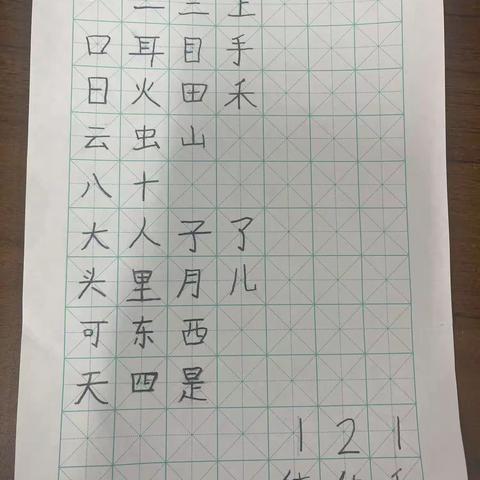 二 三 上
口 耳 目 手
日 火 田 禾
云 虫 山
八 十
大 人 子 了
头 里 月 儿
可 东 西
天 四 是
1 2 1